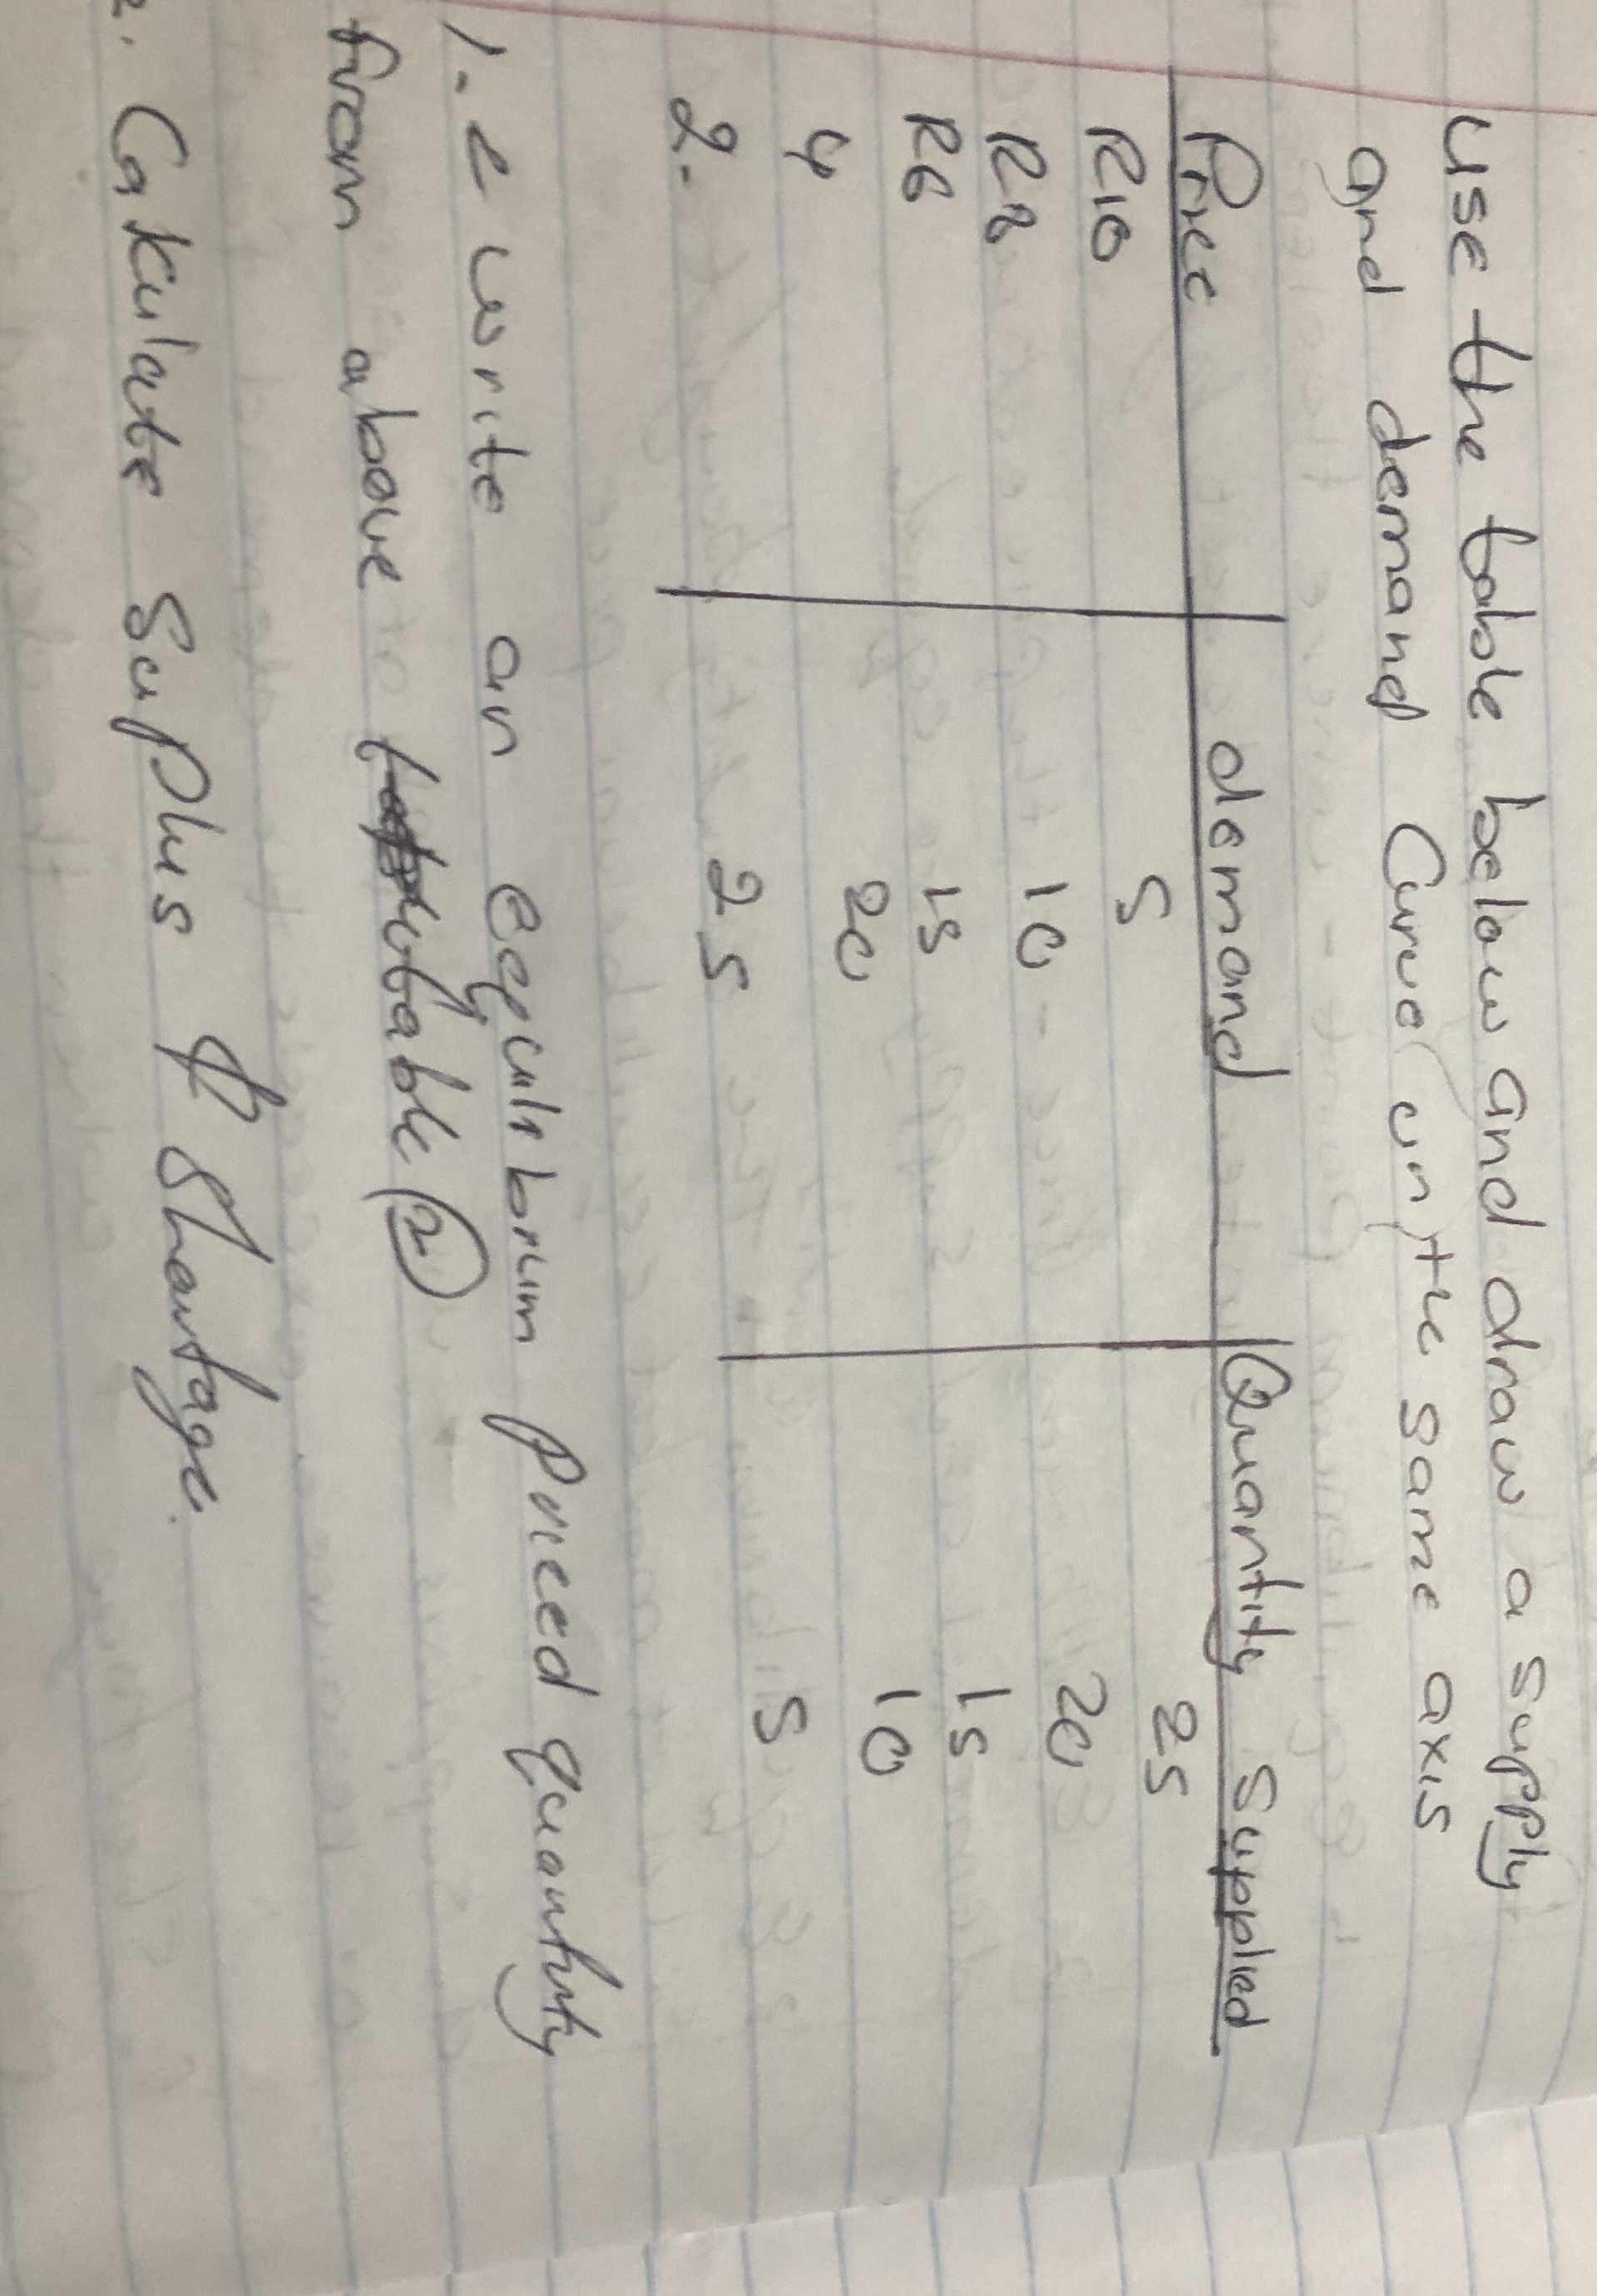 Use the table below and draw a supply
and demand Curve on the same axis
Price demand Quantity Supplied
R10 5 25
R8 10 20
R6 15 15
4 20 10
2. 25 5
1.2 write an Equilibrium Priced quantity
from above table (2)
2. Calkulate Suplus & Shortage.